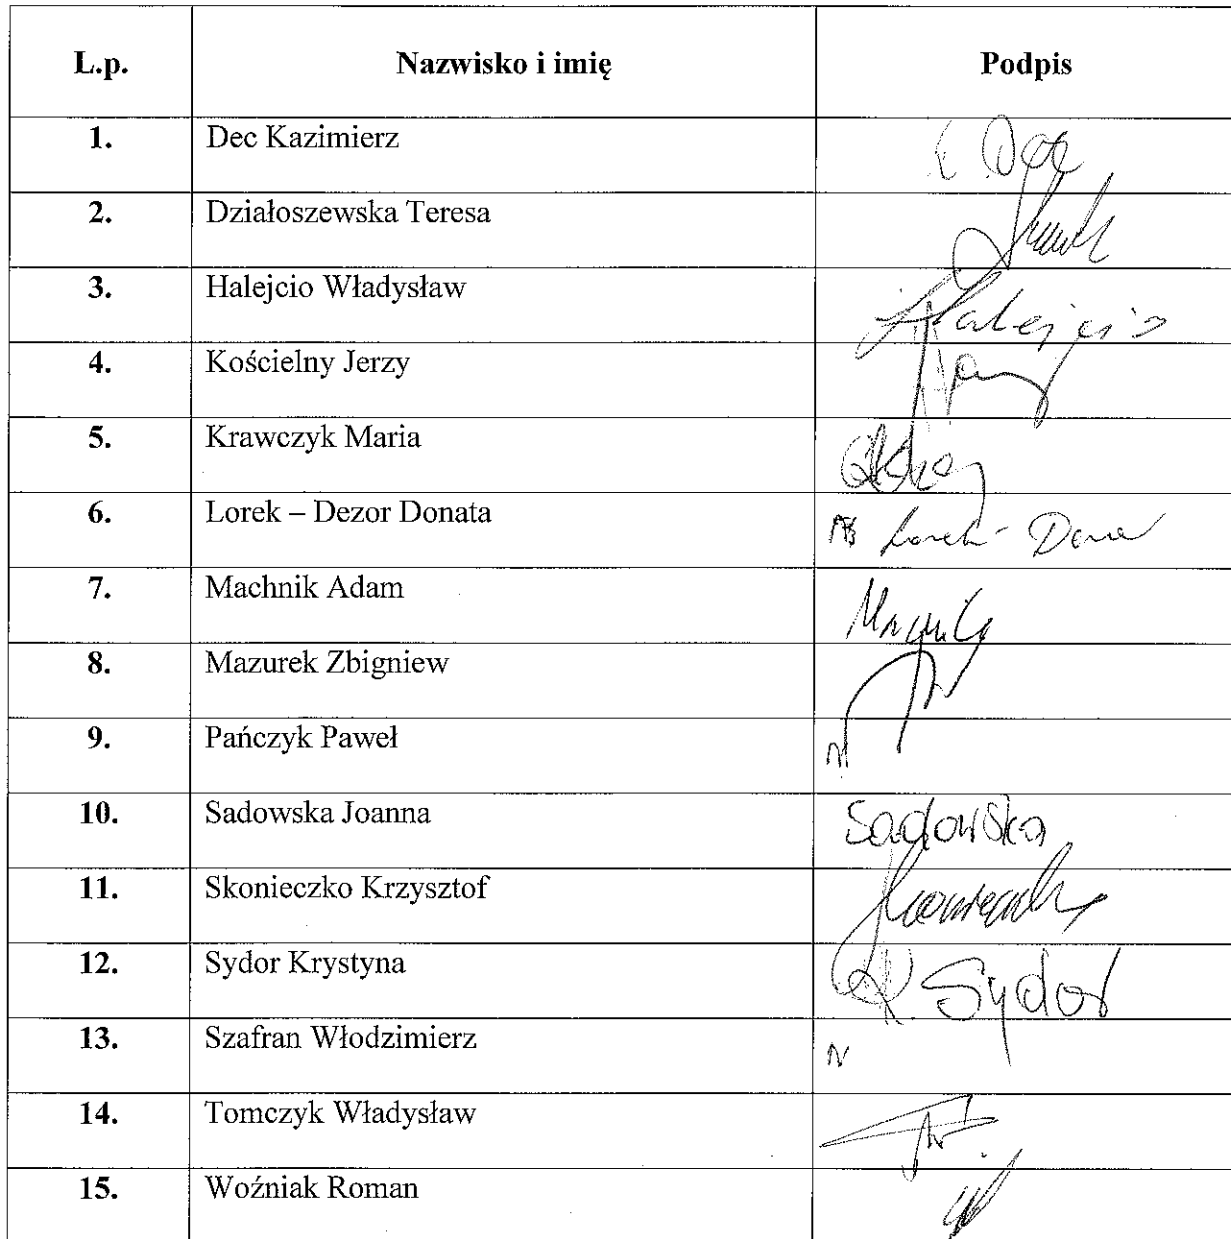 L.p. Nazwisko i imię Podpis
1. Dec Kazimierz
2. Działoszewska Teresa
3. Halejcio Władysław Halejcio
4. Kościelny Jerzy
5. Krawczyk Maria
6. Lorek – Dezor Donata
7. Machnik Adam
8. Mazurek Zbigniew
9. Pańczyk Paweł
10. Sadowska Joanna Sadowska
11. Skonieczko Krzysztof
12. Sydor Krystyna K. Sydor
13. Szafran Włodzimierz N
14. Tomczyk Władysław
15. Woźniak Roman